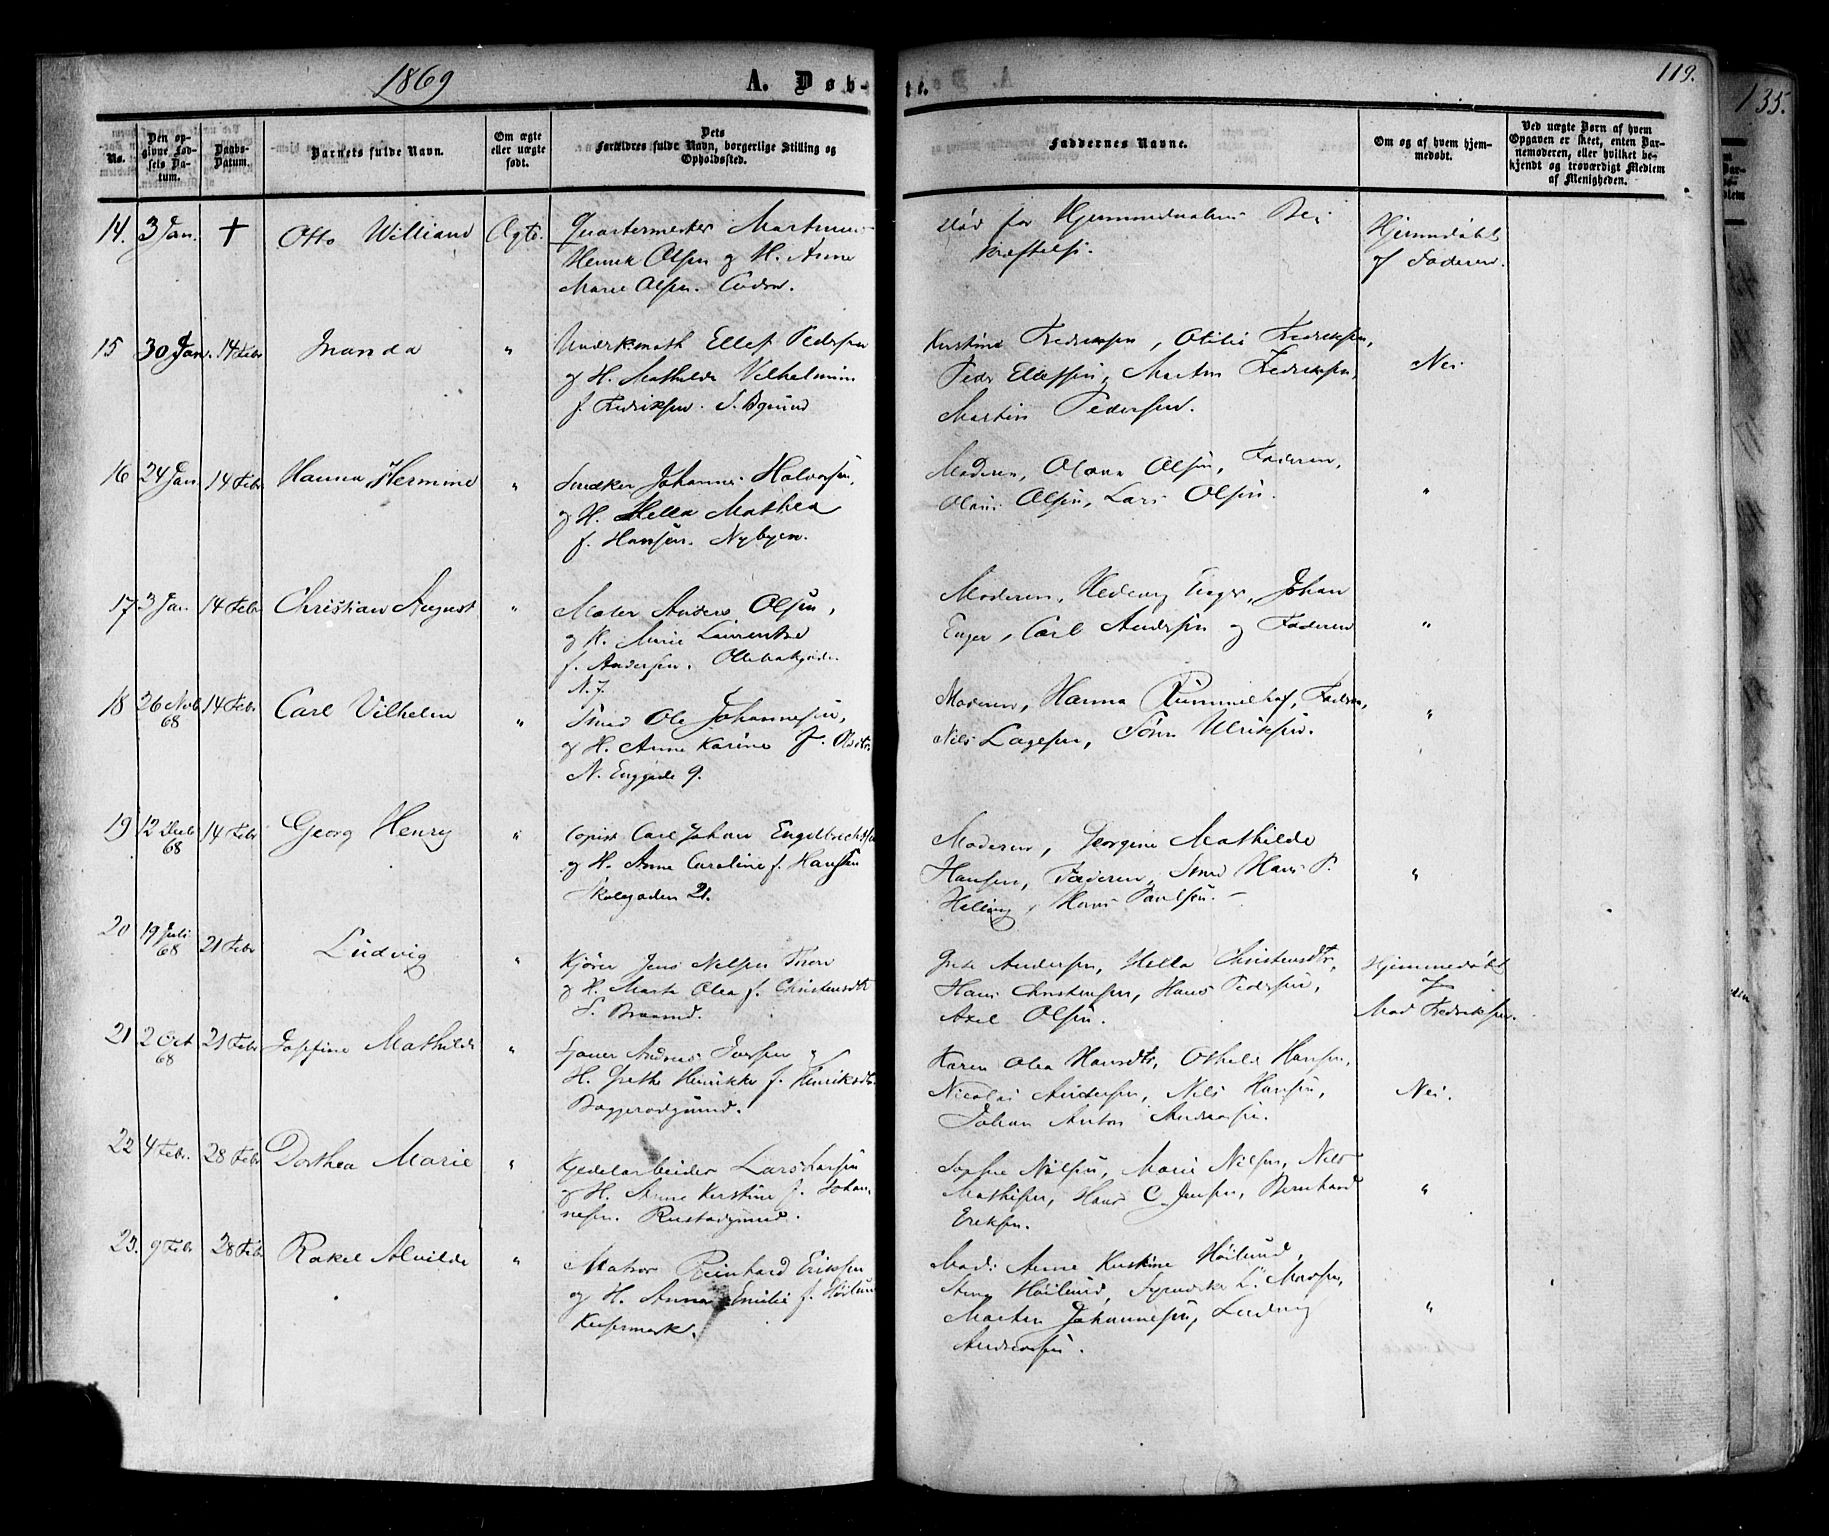 1869
A. Døb-
te.
119.
135.
No.
Den op-
givne Fød-
sels Da-
tum.
Daabs-
Datum.
Barnets fulde Navn.
Om ægte
eller uægte
født.
Dets
Forældres fulde Navn, borgerlige Stilling og
Opholdssted.
Faddernes Navne.
Om og af hvem hjem-
medøbt.
Ved uægte Børn af hvem
Opgaven er skeet, enten Bar-
nemoderen, eller hvilket be-
kjendt og troværdigt Medlem
af Menigheden.
14. 3 Jan. † Otto Williand Ægte. Quartermester
Henrik Olsen og H. Anne
Marie Olsen.
død før Hjemmedaabens Be-
kræftelse.
Hjemmedøbt
af Faderen.
15 30 Jan. 14 Febr Inanda " Ellef Pedersen
og H. Mathilde Vilhelmine
f. Fredriksen.
Kirstine Fredriksen, Otilie Fredriksen,
Peder Ellefsen, Martin Fredriksen,
Martin Pedersen.
Nei
16 24 Jan 14 Febr Hanna Hermine " Snedker Johannes Halvorsen,
og H. Hella Mathea
f. Hansen. Nybyen.
Moderen, Olava Olsen, Faderen,
Olaus Olsen, Lars Olsen.
"
17 3 Jan 14 Febr Christian August " Maler Anders Olsen,
og H. Marie Laurentse
f. Andersen.
N. 7.
Moderen, Hedevig Enger, Johan
Enger, Carl Andersen og Faderen
"
18 26 Novb 68 14 Febr Carl Vilhelm " Smed Ole Johannesen,
og H. Anne Karine f. Olsdtr.
N. Enggade 9.
Moderen, Hanna Rummelhof, Faderen,
Nils Lagesen, Sören Ulriksen.
"
19 12 Decb 68 14 Febr Georg Henry " Copist Carl Johan Engelbrechtsen
og H. Anne Caroline f. Hansen
Skolegaden 21.
Moderen, Georgine Mathilde
Hansen, Faderen, Smed Hans P.
Helling, Hans Paulsen.
"
20 19 Juli 68 21 Febr Ludvig " Kjører Jens Nilsen
og H. Marte Olea f. Christensdtr
Andersen, Hella Christensdtr,
Hans Christensen, Hans Pedersen,
Axel Olsen.
Hjemmedøbt
af
Mad Fredriksen.
21 2 Oct 68 21 Febr Josefine Mathilde " Andreas
H. Grethe Henrikke f. Henriksdtr.
Karen Olea Hansdtr, Othilde Hansen,
Nicolai Andersen, Nils Hansen,
Johan Anton Andersen.
Nei.
22 4 Febr. 28 Febr Dorthea Marie " Kjedelarbeider Lars Larsen
og H. Anne Kirstine f. Johan-
nesen. Rustadgrund.
Sophie Nilsen, Marie Nilsen, Nils
Mathisen, Hans C. Jensen, Bernhard
Eriksen.
"
23. 9 Febr 28 Febr Rakel Alvilde " Matros Reinhard Eriksen
og H. Anna Emilie f. Höilund
Mad: Anne Kirstine Höilund,
Höilund,
Morten Johannesen, Ludvig
Andreasen.
"